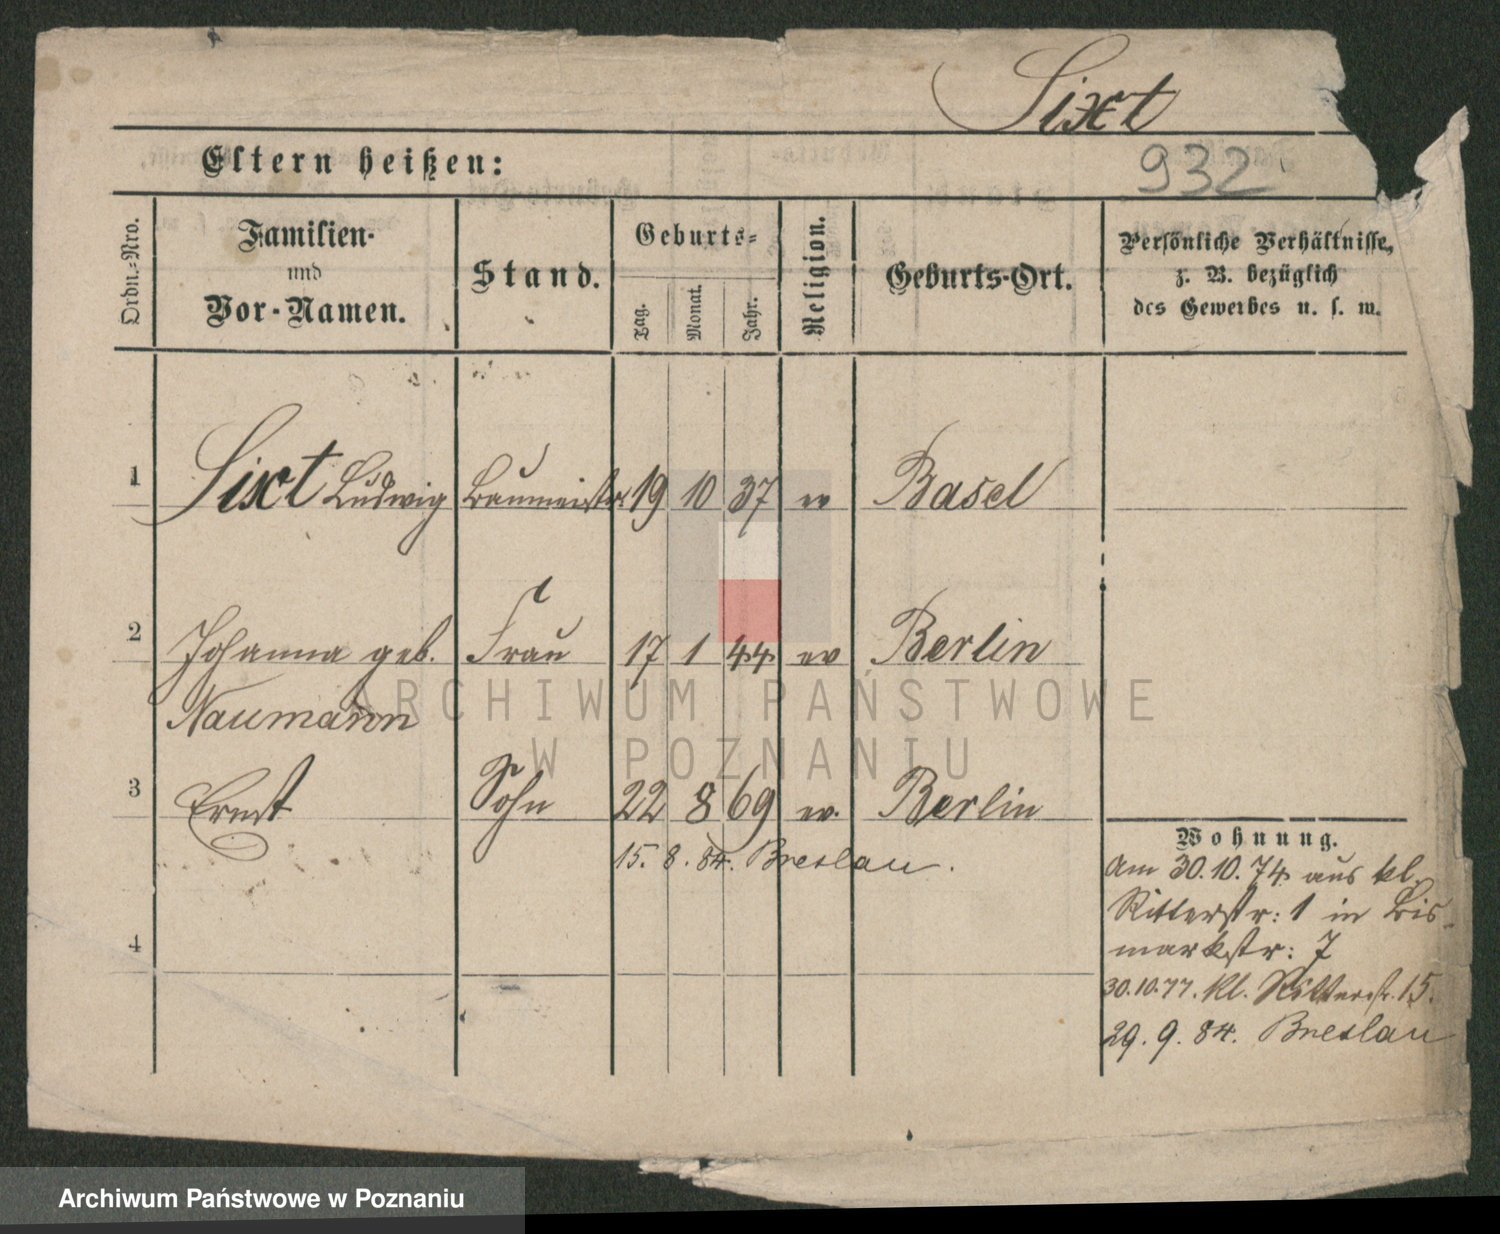 Sixt
Eltern heißen:
932
Ordn.-Nro.
Familien-
und
Vor-Namen.
Stand.
Geburts-
Tag.
Monat.
Jahr.
Religion.
Geburts-Ort.
Persönliche Verhältnisse,
z. B. bezüglich
des Gewerbes u. s. w.
1 Sixt Ludwig Baumeister 19 10 37 ev Basel
2 Johanna geb. Frau 17 1 44 ev Berlin
Naumann
3 Ernst Sohn 22 8 69 ev. Berlin
15. 8. 84. Breslau.
4
Wohnung.
Am 30.10.74 aus kl.
Ritterstr: 1 in Bis-
markstr: 7
30.10.77. kl. Ritterstr. 15.
29. 9. 84. Breslau
ARCHIWUM PAŃSTWOWE
W POZNANIU
Archiwum Państwowe w Poznaniu